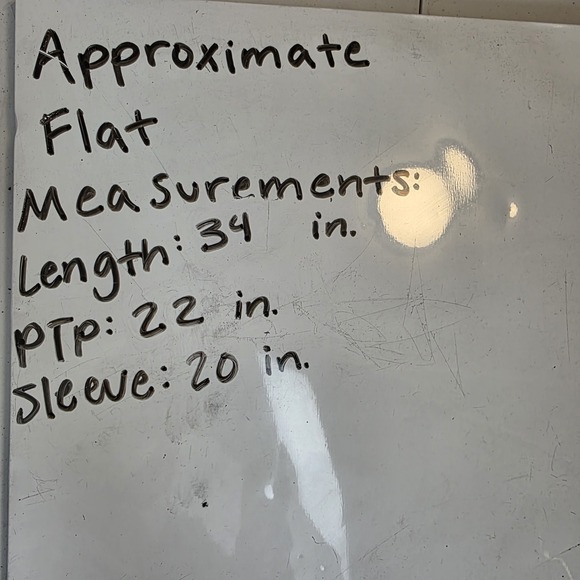 Approximate
Flat
Measurements:
Length: 34 in.
PTP: 22 in.
Sleeve: 20 in.